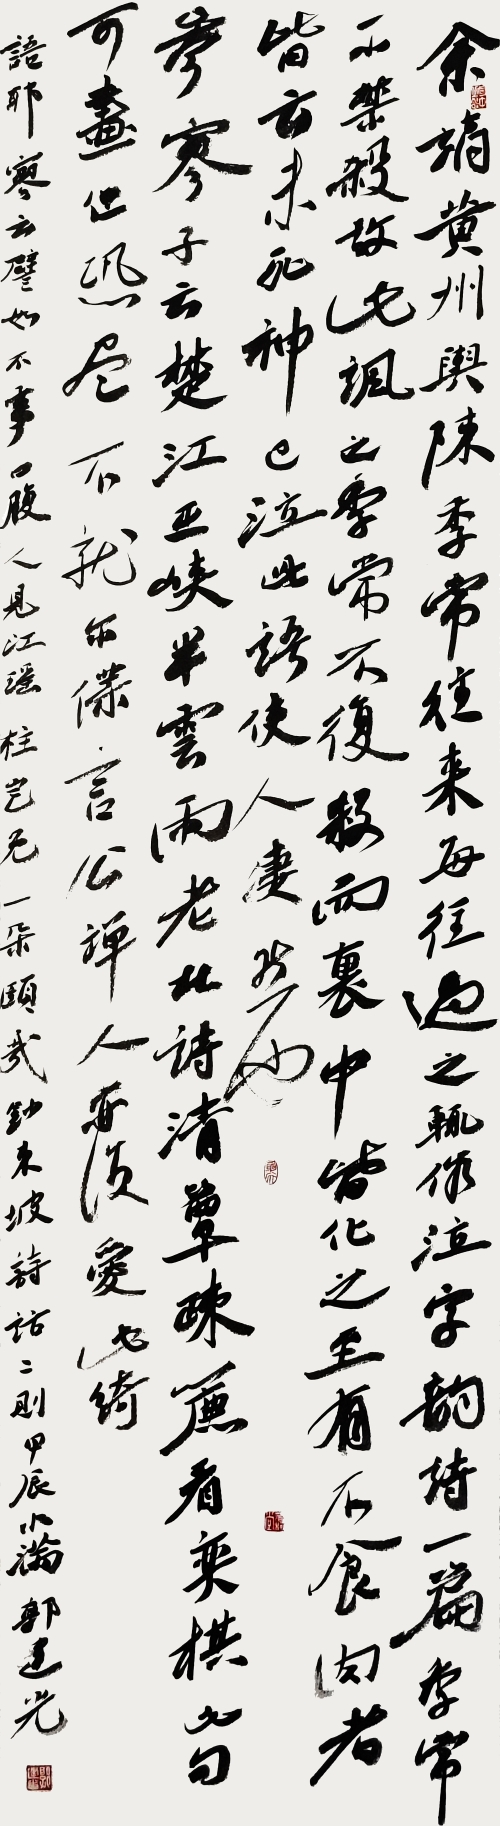 余謫黄州與陳季常往来每往過之輒作泣字韵詩一篇季常
不禁殺故此諷之季常不復殺而裏中皆化之至有不食肉者
皆云未死神已泣此語使人凄然也
参寥子云楚江巫峡半雲雨老杜詩清簟疎簾看奕棋此句
可畫但恐尽不就尔僕言公禅人亦復愛此綺
語耶寥云譬如不事口腹人見江瑶柱豈免一朵頤哉鈔東坡詩話二則甲辰小滿郭建光